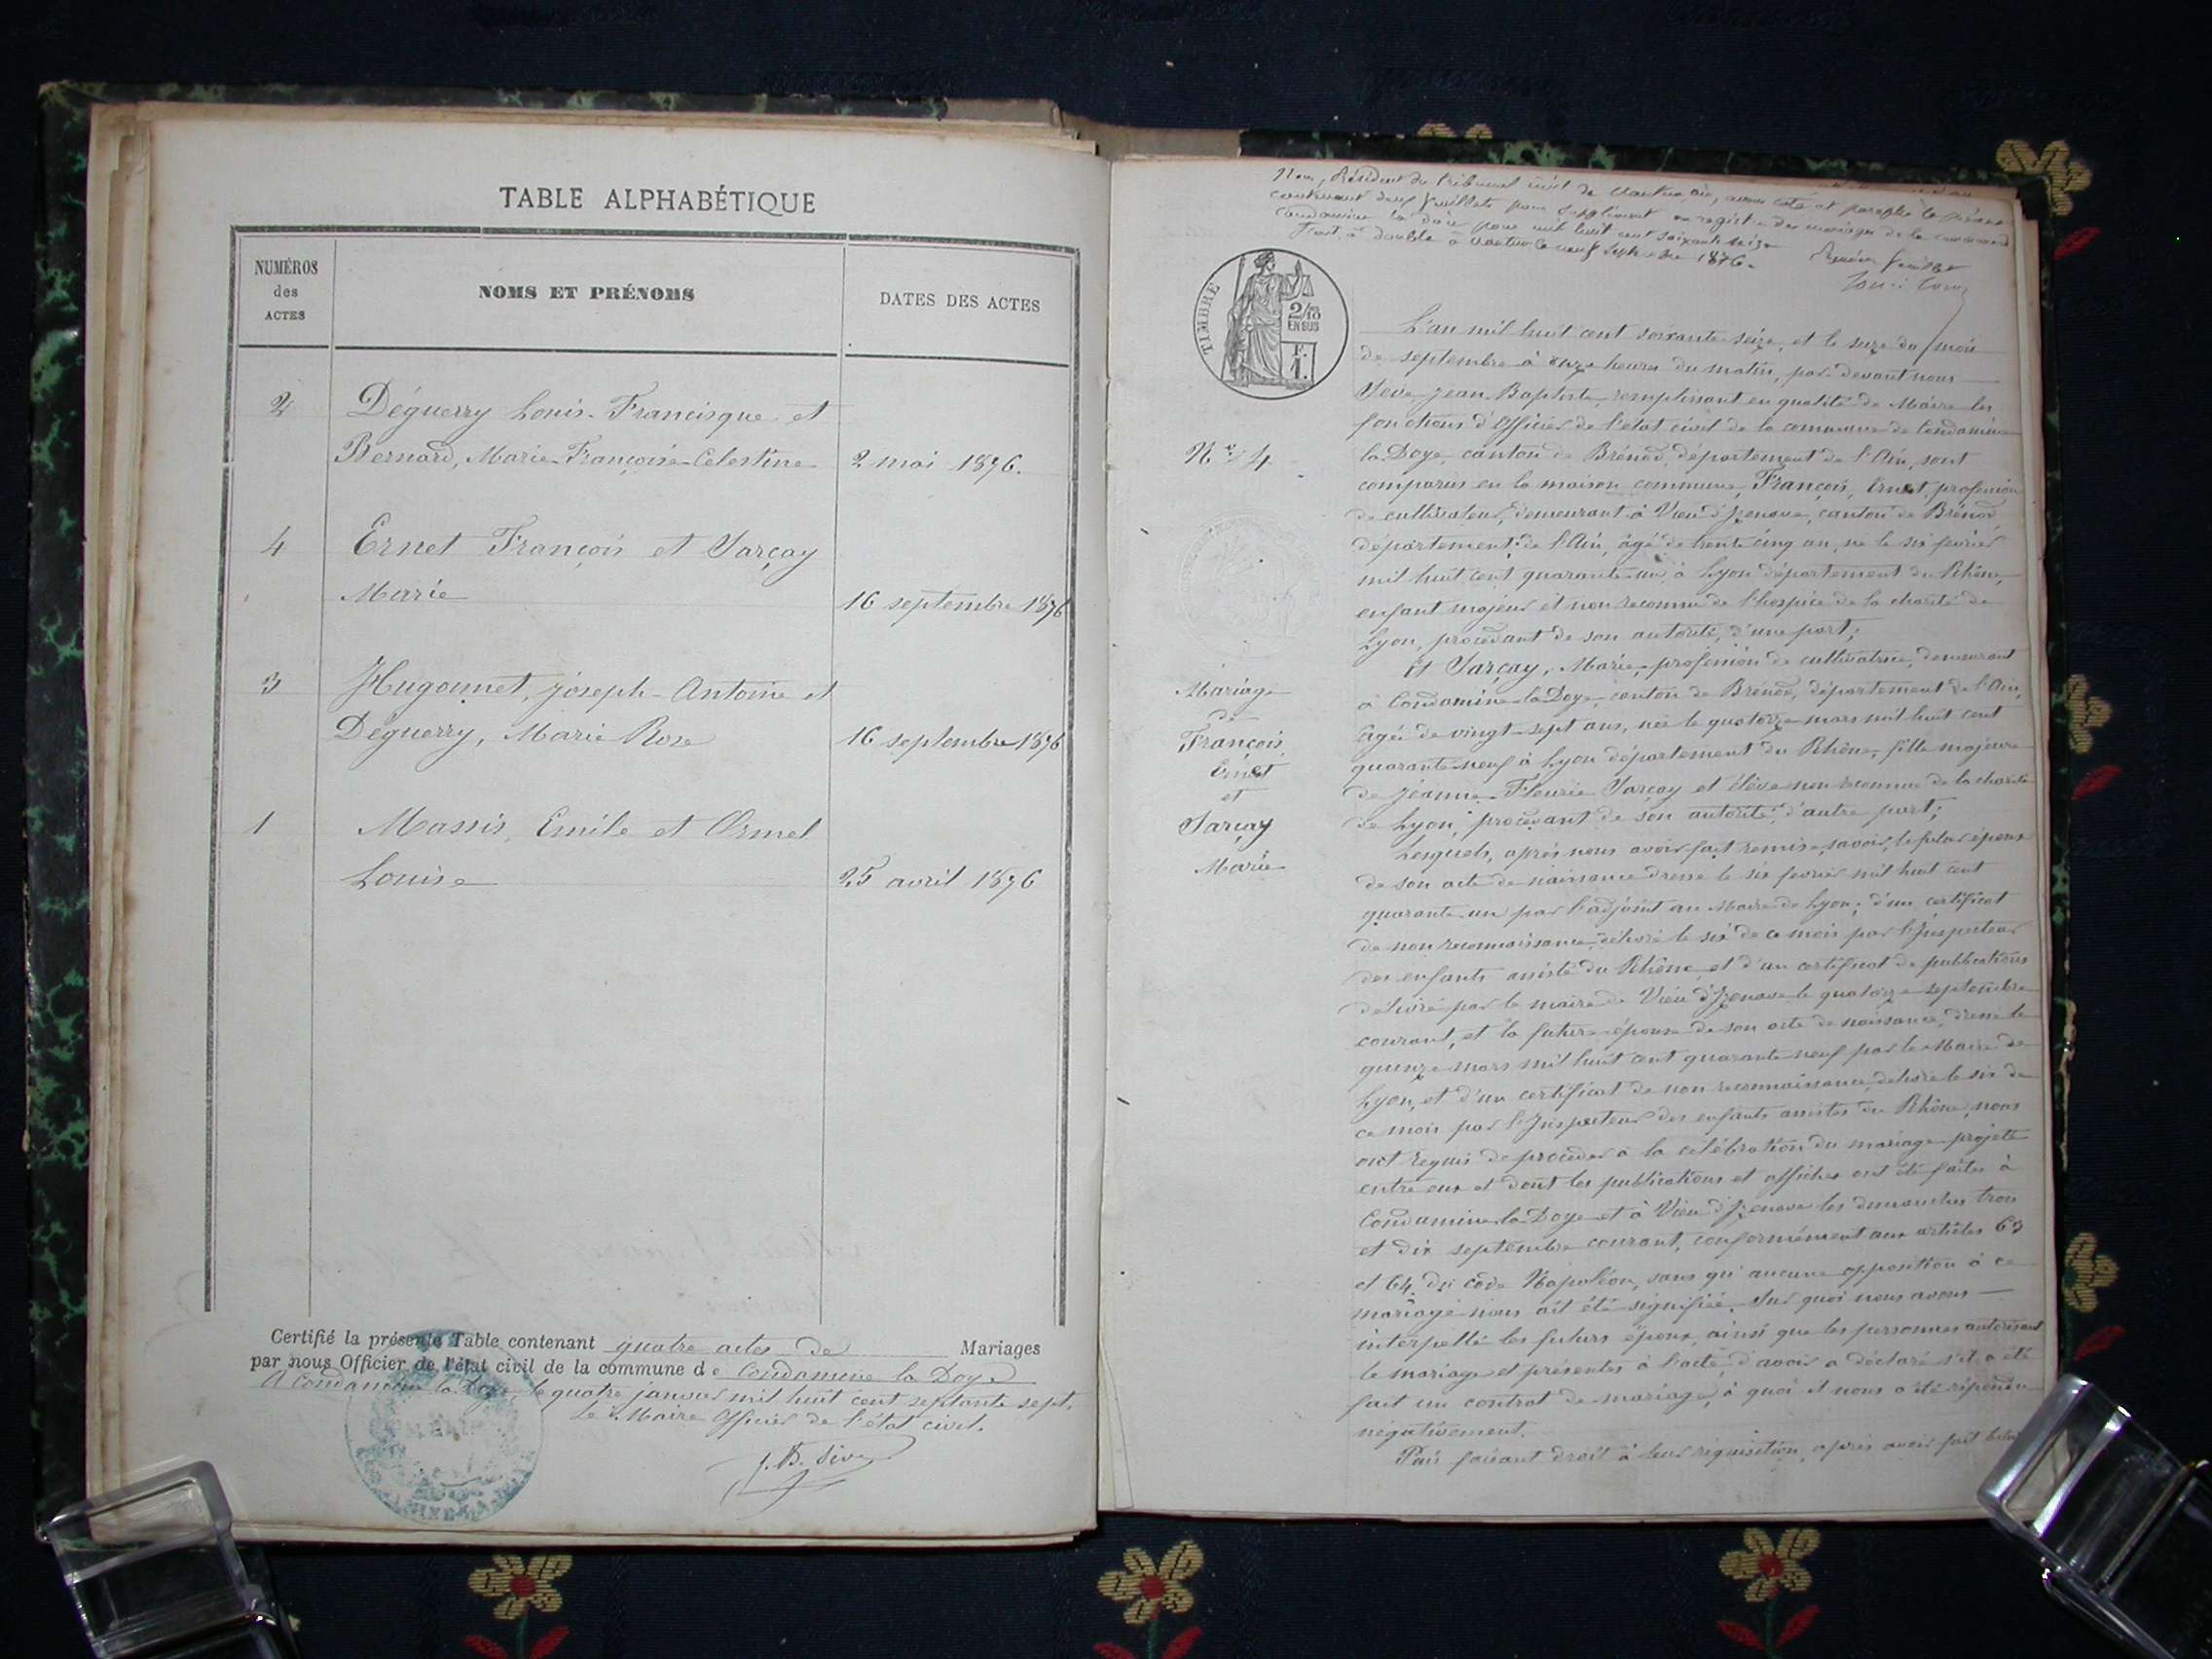 TABLE ALPHABÉTIQUE
NUMÉROS
des
ACTES
NOMS ET PRÉNOMS
DATES DES ACTES
2 Déguerry Louis-Francisque et
Bernard, Marie-Françoise-Celestine 2 mai 1876.
4 Ernet François et Sarçay
Marie 16 septembre 1876
3 Hugonnet, joseph-Antoine et
Deguerry, Marie Rose 16 septembre 1876
1 Massis, Emile et Ormel
Louise 25 avril 1876
Certifié la présente Table contenant quatre actes de Mariages
par nous Officier de l'état civil de la commune de Condamine la Doye
A Condamine la Doye, le quatre janvier mil huit cent septante sept.
Le Maire Officier de l'état civil.
J. B. Sève
Nous, Président du tribunal civil de Nantua, avons coté et paraphé le présent
contenant deux feuillets pour supplément au registre des mariages de la commune de
Condamine la doie pour mil huit cent soixante seize
Fait à double à Nantua le neuf septembre 1876.
Premier feuillet
TIMBRE
2/10
EN SUS
F.
1.
L'an mil huit cent soixante seize, et le seize du mois
de septembre à onze heures du matin, par devant nous
Sève Jean Baptiste, remplissant en qualité de Maire les
fonctions d'Officier de l'état civil de la commune de Condamine
N° 4
la Doye, canton de Brénod, département de l'Ain, sont
comparus en la maison commune, François, Ernet, profession
de cultivateur, demeurant à Vieu d'Izenave, canton de Brénod
département de l'Ain, âgé de trente cinq an, né le six fevrier
mil huit cent quarante-un à Lyon département du Rhône,
enfant majeur et non reconnu de l'hospice de la charité de
Lyon, procédant de son autorité, d'une part;
Mariage
de
François
Ernet
et
Sarçay
Marie
Et Sarçay, Marie, profession de cultivatrice, demeurant
à Condamine-la-Doye, canton de Brénod, département de l'Ain,
âgée de vingt-sept ans, née le quatorze mars mil huit cent
quarante-neuf à Lyon département du Rhône, fille majeure
de Jeanne-Fleurie Sarçay et élève non reconnue de la charité
de Lyon, procédant de son autorité, d'autre part;
Lesquels, après nous avoir fait remise, savoir, le futur époux
de son acte de naissance dressé le six fevrier mil huit cent
quarante-un par l'adjoint au Maire de Lyon; d'un certificat
de non reconnaissance, délivré le six de ce mois par l'Inspecteur
des enfants assisté du Rhône et d'un certificat de publications
délivré par le maire de Vieu d'Izenave le quatorze septembre
courant, et la future épouse de son acte de naissance, dressé le
quinze mars mil huit cent quarante neuf par le Maire de
Lyon, et d'un certificat de non reconnaissance, délivré le six de
ce mois par l'Inspecteur des enfants assistés du Rhône, nous
ont requis de procéder à la célébration du mariage projeté
entre eux et dont les publications et affiches ont été faites à
Condamine-la-Doye et à Vieu d'Izenave les dimanches trois
et dix septembre courant, conformément aux articles 63
et 64 du code Napoléon, sans qu'aucune opposition à ce
mariage nous ait été signifiée. Sur quoi nous avons
interpellé les futurs époux, ainsi que les personnes autorisant
le mariage et présentes à l'acte, d'avoir a déclaré s'il a été
fait un contrat de mariage, à quoi il nous a été répondu
négativement.
Puis faisant droit à leur réquisition, après avoir fait